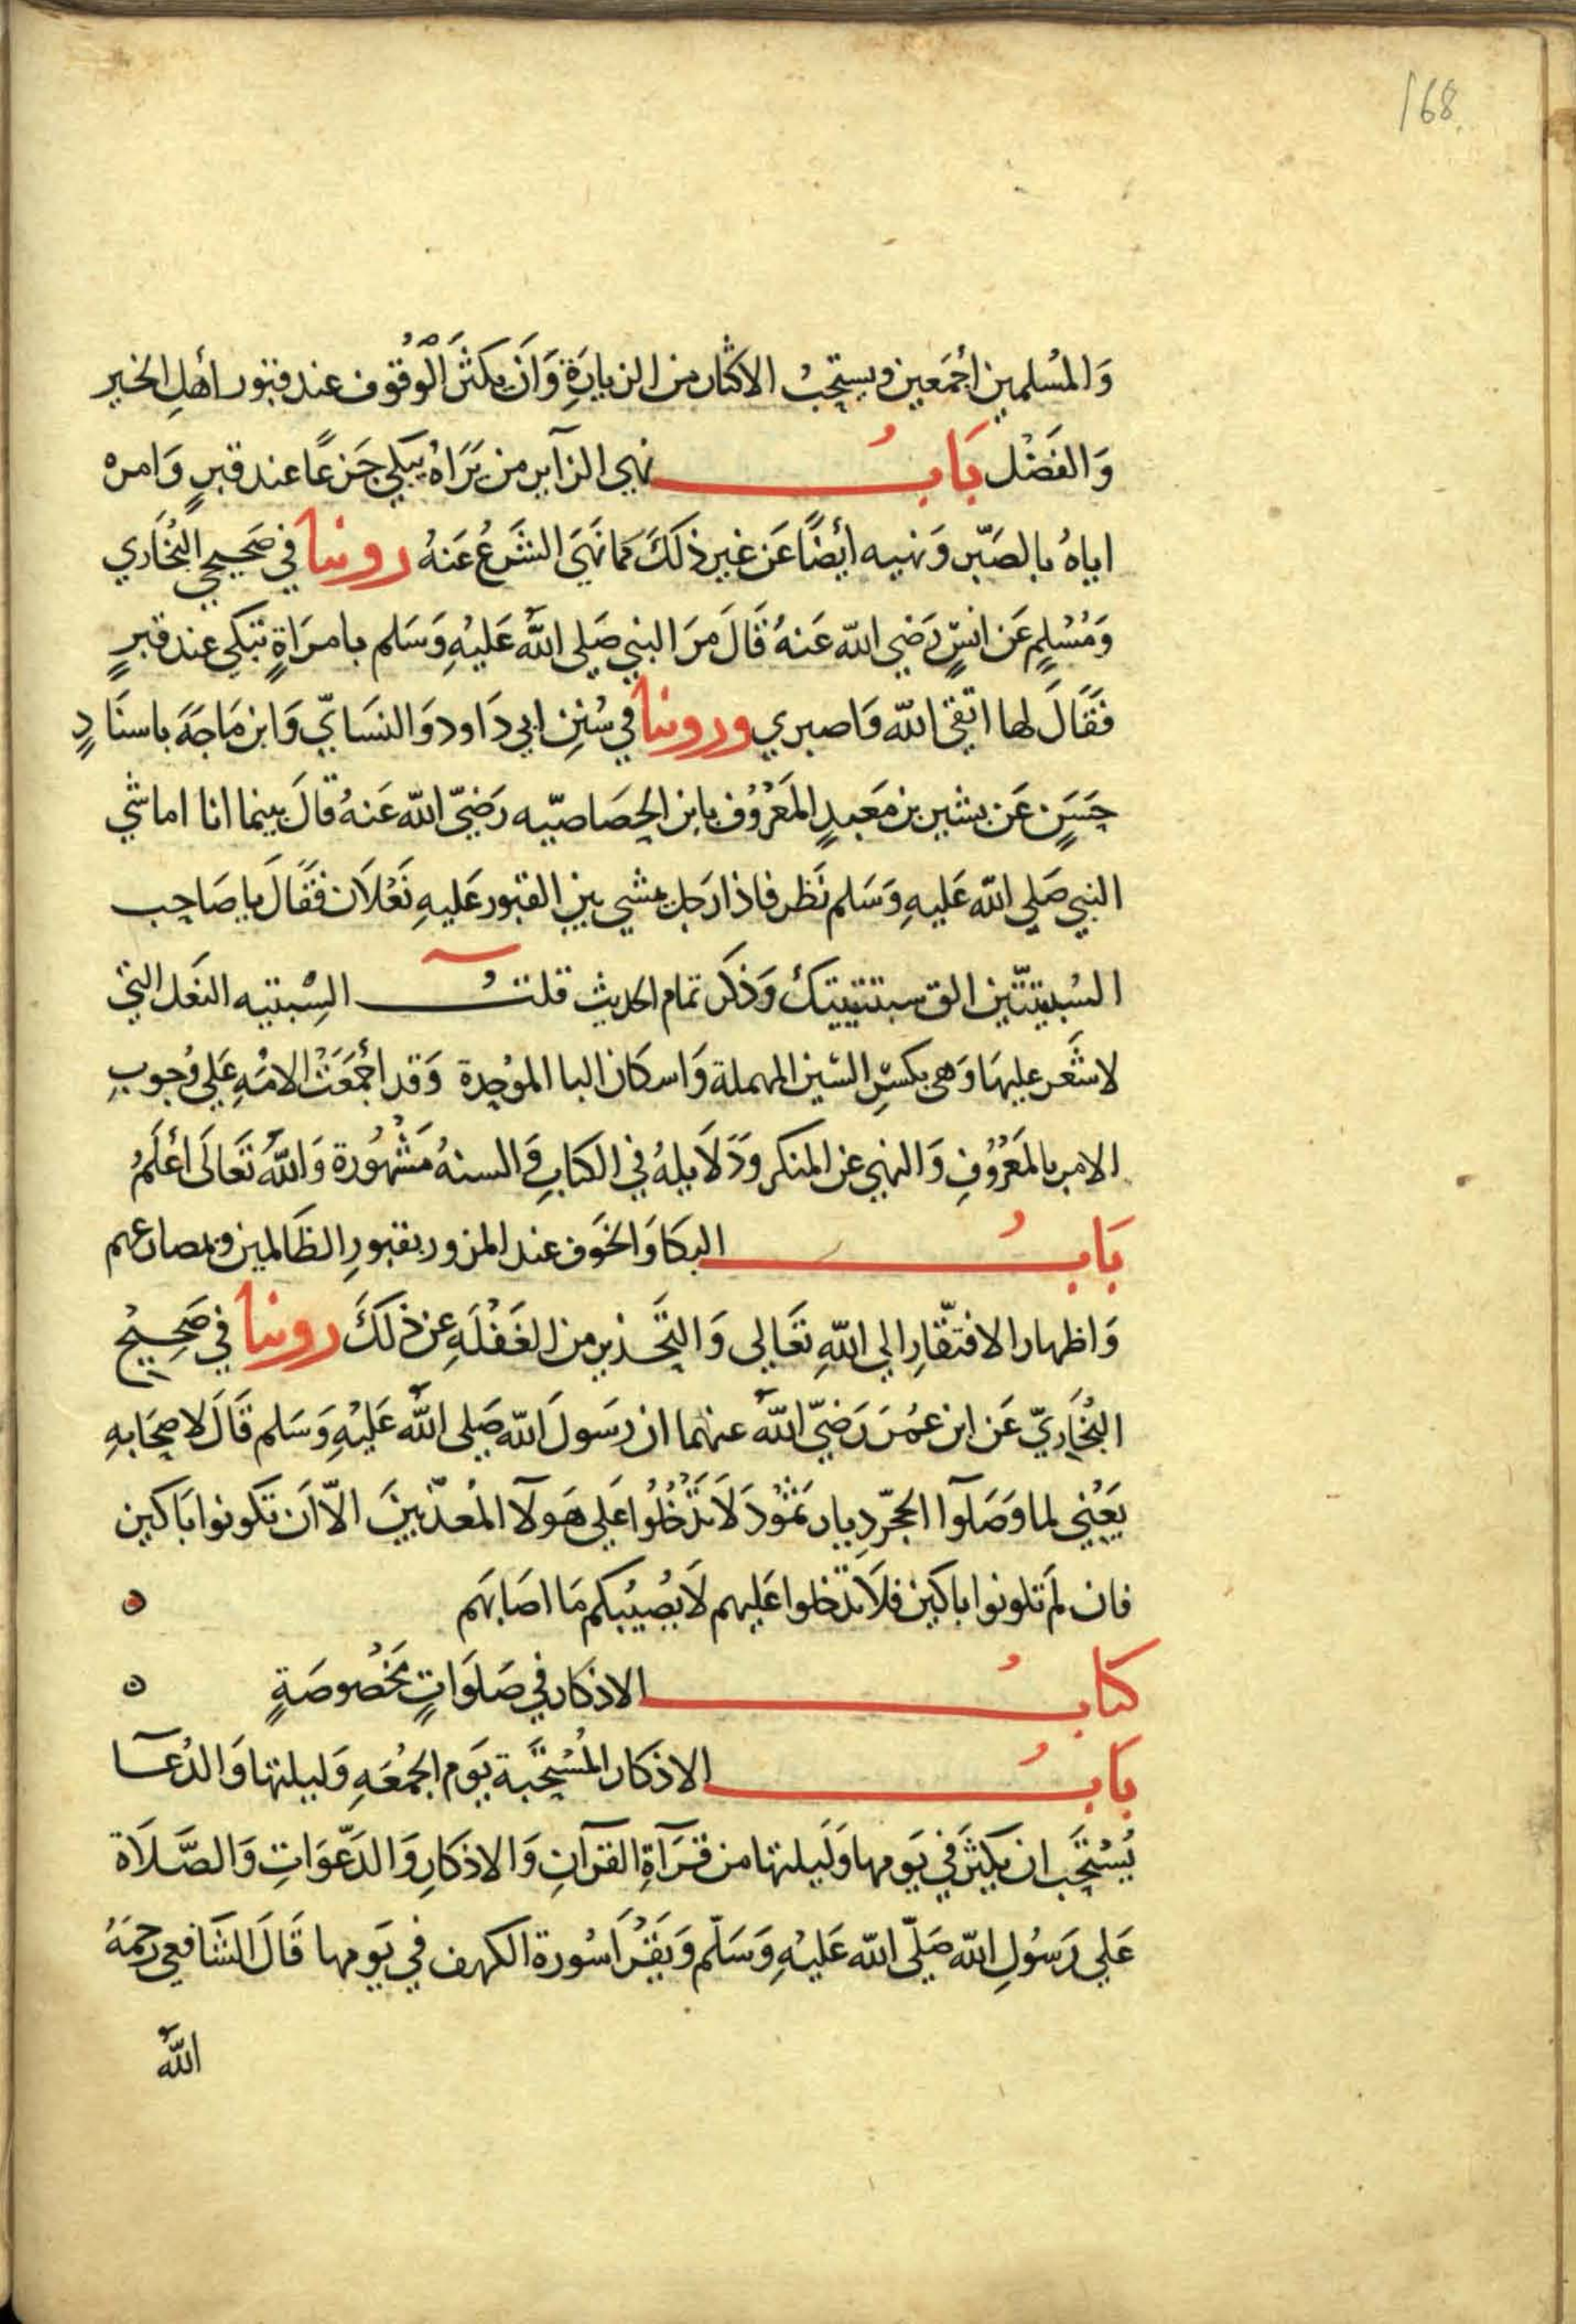 168
وَالمُسلمين أجمَعين ويستحِبُ الاكثار من الزيارَةِ وَاَن يكثَر الْوُقوف عند قبور أهلِ الخير
وَالفَضْل بَابُ نهي الزآير من يَرَاهُ يبكي جَزعًا عند قبرٍ وَامره
اياهُ بالصَبّر وَنهيه أيضًا عَن غير ذلكَ مما نَهَى الشَرعُ عَنهُ روينا في صَحيحي البُخَاري
وَمُسْلِمٍ عَن انسٍ رَضي الله عَنهُ قَالَ مرَ النبي صَلي اللهُ عَليْهِ وَسَلم بامرَاةٍ تبكي عند قبرٍ
فَقَالَ لها اتقي الله وَاصبري وروينا في سُنَنِ ابي دَاود وَالنسَايّ وَابن مَاجَهَ باسنَادٍ
حَسَنٍ عَن بشير بن مَعبدٍ المَعْرُوُف بابن الخصَاصيّه رَضيّ الله عَنهُ قالَ بينما انا اماشي
النبي صَلي الله عَليهِ وَسَلم نَظر فاذا رَجل يمشي بين القبور عَليهِ نَعْلَان فَقَالَ يا صَاحِب
السُبتيتّين الق سبتيتيك وَذكَر تمام الحديث قلتُ السِبْتيه النعَل التي
لا شَعَر عليهَا وَهي بكسْرِ السّين المهملة وَاسكان البا الموْحِدة وَقد أجْمَعَتْ الامْهِ عَلي وُجوبِ
الامر بالمَعْرُوُفِ وَالنهي عن المنكر وَدَلَايلهُ في الكتابِ وَالسنهُ مَشْهُورة وَاللهُ تَعَالَى أعْلَمُ
بَابُ البكا وَالخوَف عند المرور بقبورِ الظَالمين وبمصارعهم
وَاظهار الافتقّارِ الي اللهِ تعَالِى وَالتَحذير من الغَفْلَهِ عن ذلَكَ روينا في صَحِيْح
البُخَاريّ عَن ابن عمُرَ رَضيّ اللهُ عنهما ان رَسَولَ الله صَلي اللهُ عَليْهِ وَسَلم قَالَ لاصحَابهِ
يَعْني لما وَصَلوآ الحجّر دِيار ثمَوُدَ لَا تَدْخُلُوا عَلي هَولآ المُعذّبينَ الاّ اَن تكونوا بَاكين
فان لَم تلونوا باكين فلَا تدّخلوا عَليهم لَا يُصِيْبكم مَا اصَابَهم ٥
كتابُ الاذكار في صَلوَاتٍ مَخْصُوصَةٍ ٥
بَابُ الاذكار المُسْتحَبة يَوم الجمْعَهِ وَليلتها وَالدُعآ
يُسْتحَب ان يكثِرَ في يَومها وَلَيلتها من قرَآةِ القرآنِ وَالاذكارِ وَالدَعَّوَاتِ وَالصَّلَاة
عَلي رَسُولِ الله صَلّي الله عَليْهِ وَسَلّم وَيَقْرَا سُورة الكهف في يَومها قَالَ الشَافعي رحمَهُ
اللهُ